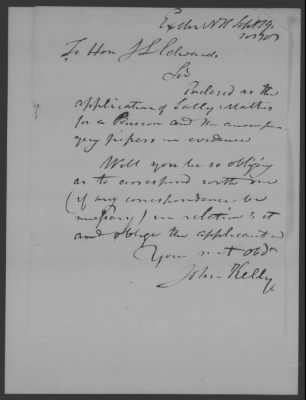 Exeter NH Sept 19.
To Hon J L Edwards
Sir
Enclosed is the
application of Sally Mathis
for a Pension and the accompa
ying papers in evidence
Will you be so obliging
as to correspond with me
(if any correspondence be
necessary) in relation to it
and oblige the applicant &
Your most obdt
John Kelly